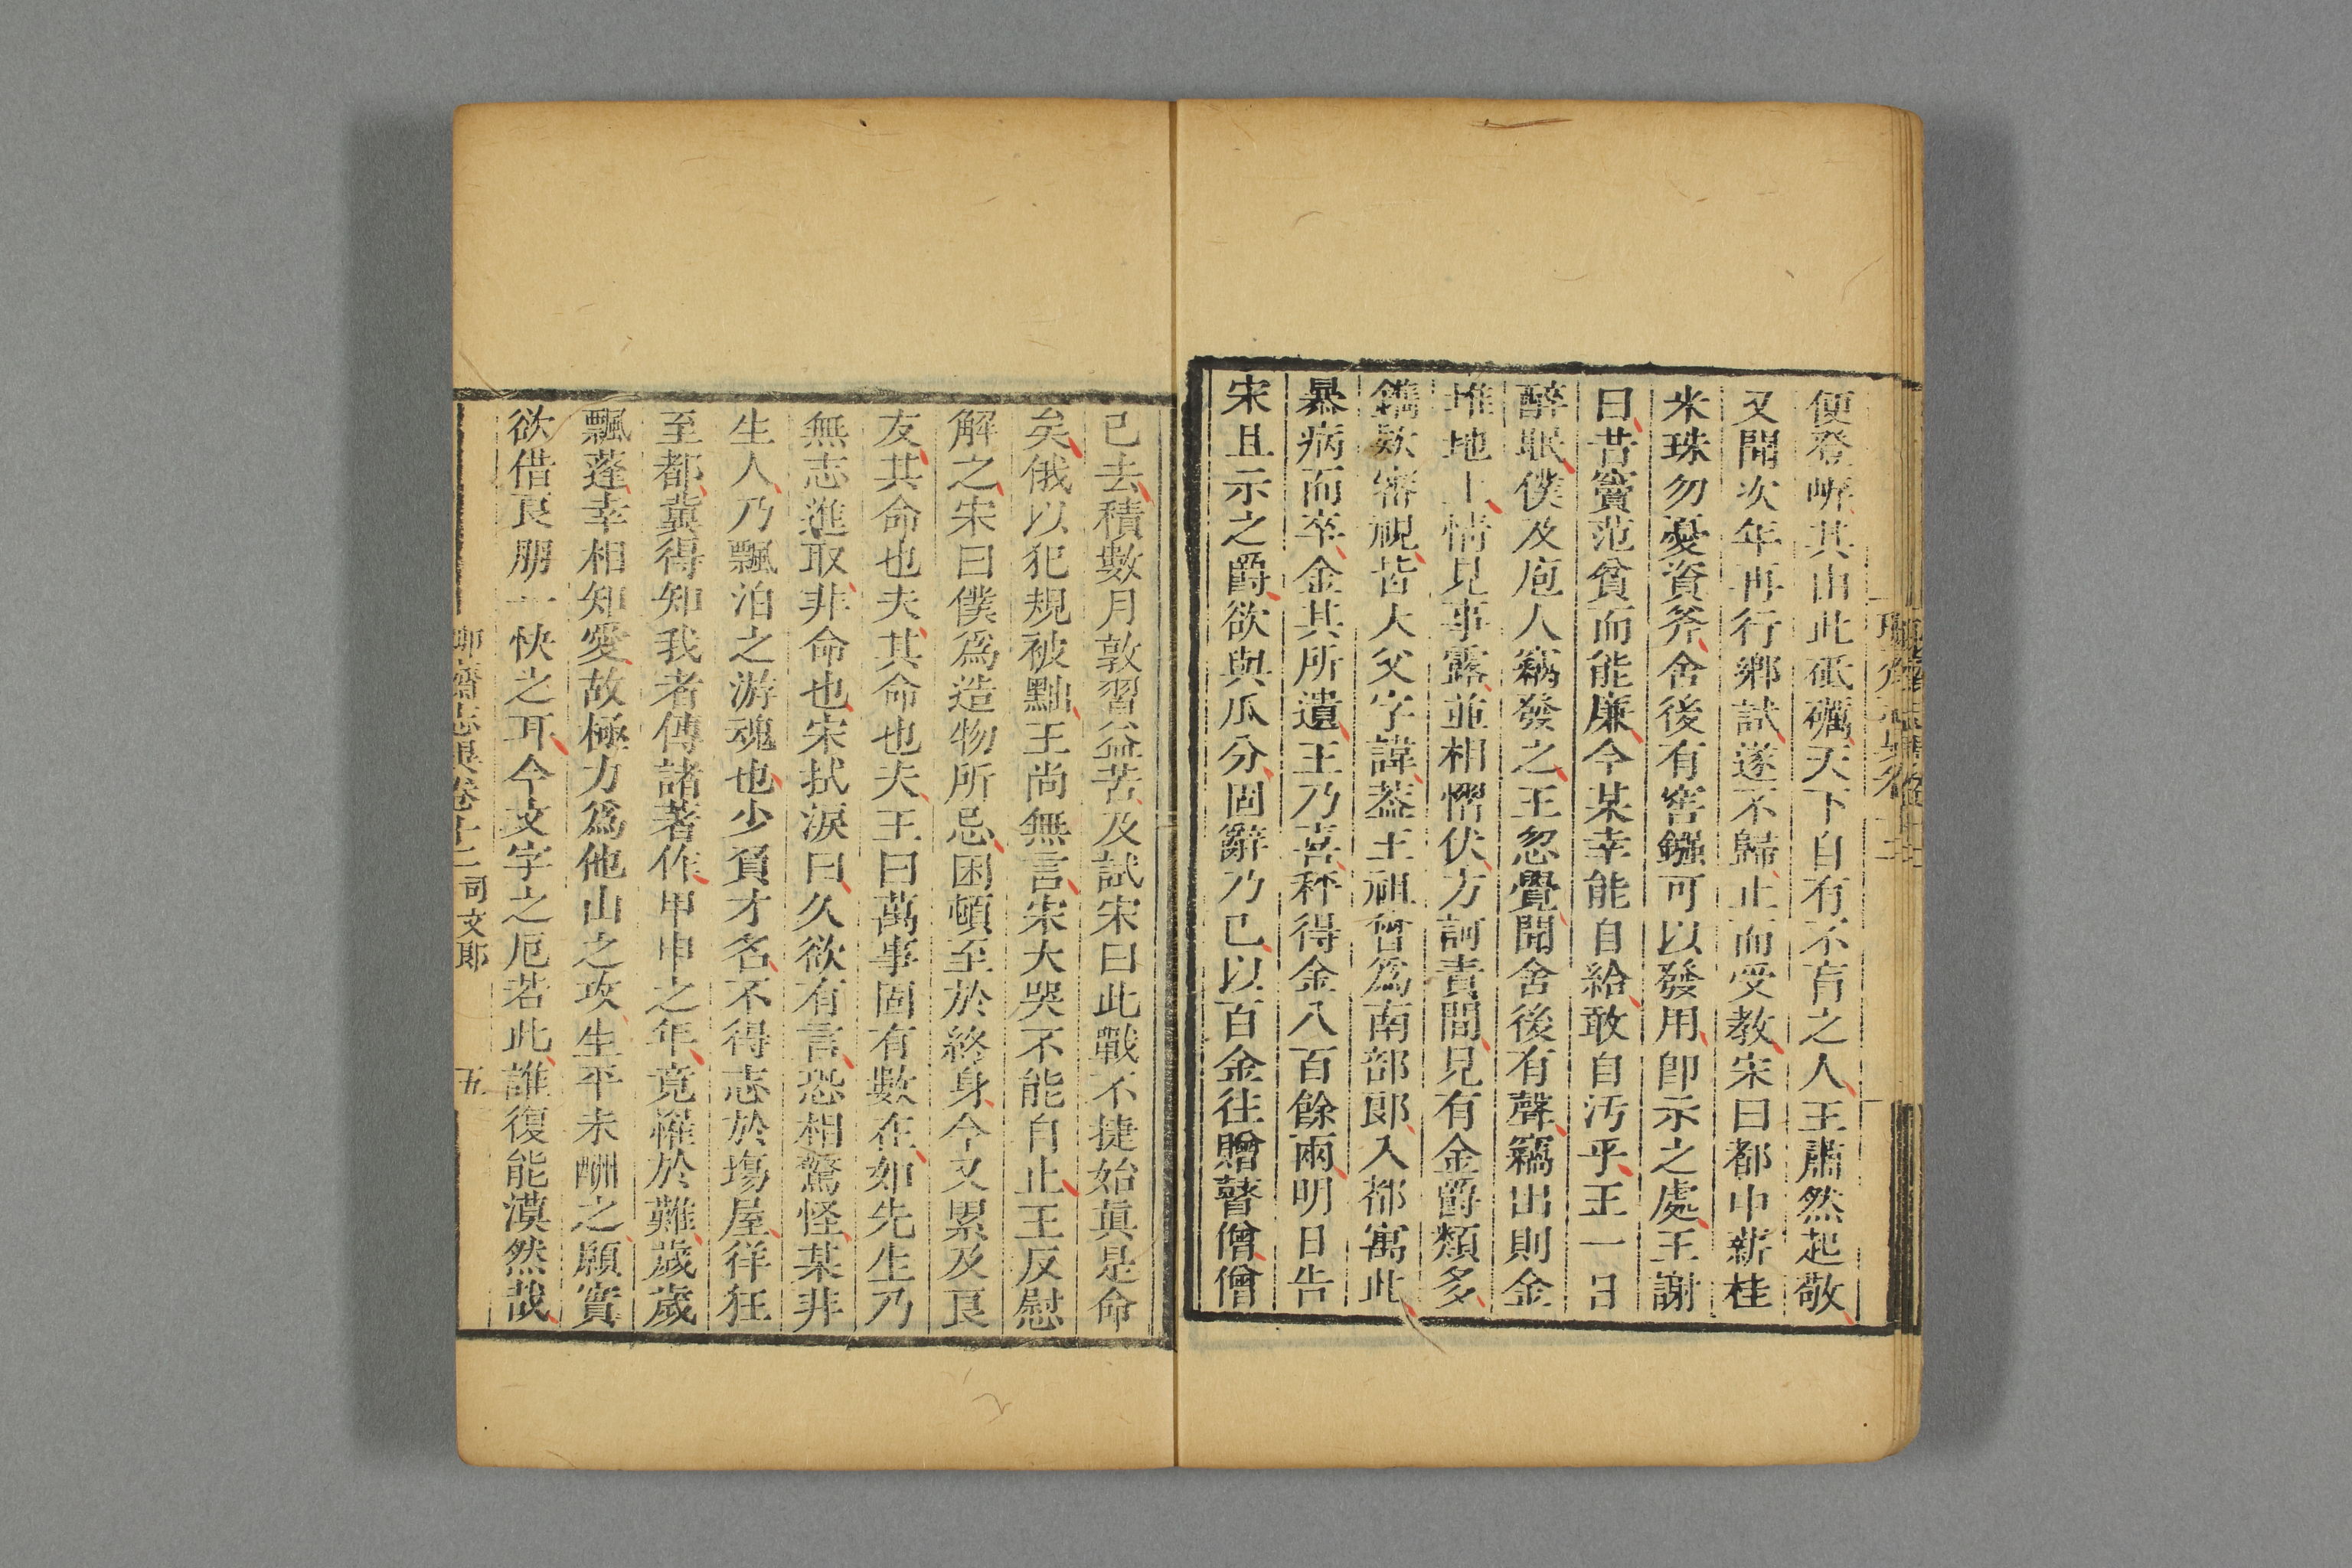 便登□其由此砥礪天下自有不盲之人王肅然起敬
又聞次年再行鄉試遂不歸止而受教宋曰都中薪桂
米珠勿憂資斧舍後有窖鏹可以發用即示之處王謝
曰昔竇范貧而能廉今某幸能自給敢自汚乎王一日
醉眠僕及庖人竊發之王忽覺聞舍後有聲竊出則金
堆地上情見事露並相慴伏方訶責間見有金爵類多
鐫款審視皆大父字諱葢王祖曾爲南部郎入都寓此
暴病而卒金其所遺王乃喜秤得金八百餘兩明日告
宋且示之爵欲與瓜分固辭乃已以百金往贈瞽僧僧
已去積數月敦習益苦及試宋曰此戰不捷始眞是命
矣俄以犯規被黜王尚無言宋大哭不能自止王反慰
解之宋曰僕爲造物所忌困頓至於終身今又累及良
友其命也夫其命也夫王曰萬事固有數在如先生乃
無志進取非命也宋拭淚曰久欲有言恐相驚怪某非
生人乃飄泊之游魂也少負才名不得志於塲屋徉狂
至都冀得知我者傳諸著作甲申之年竟罹於難歲歲
飄蓬幸相知愛故極力爲他山之攻生平未酬之願實
欲借良朋一快之耳今文字之厄若此誰復能漠然哉
聊齋志異卷十二 司文郎 五